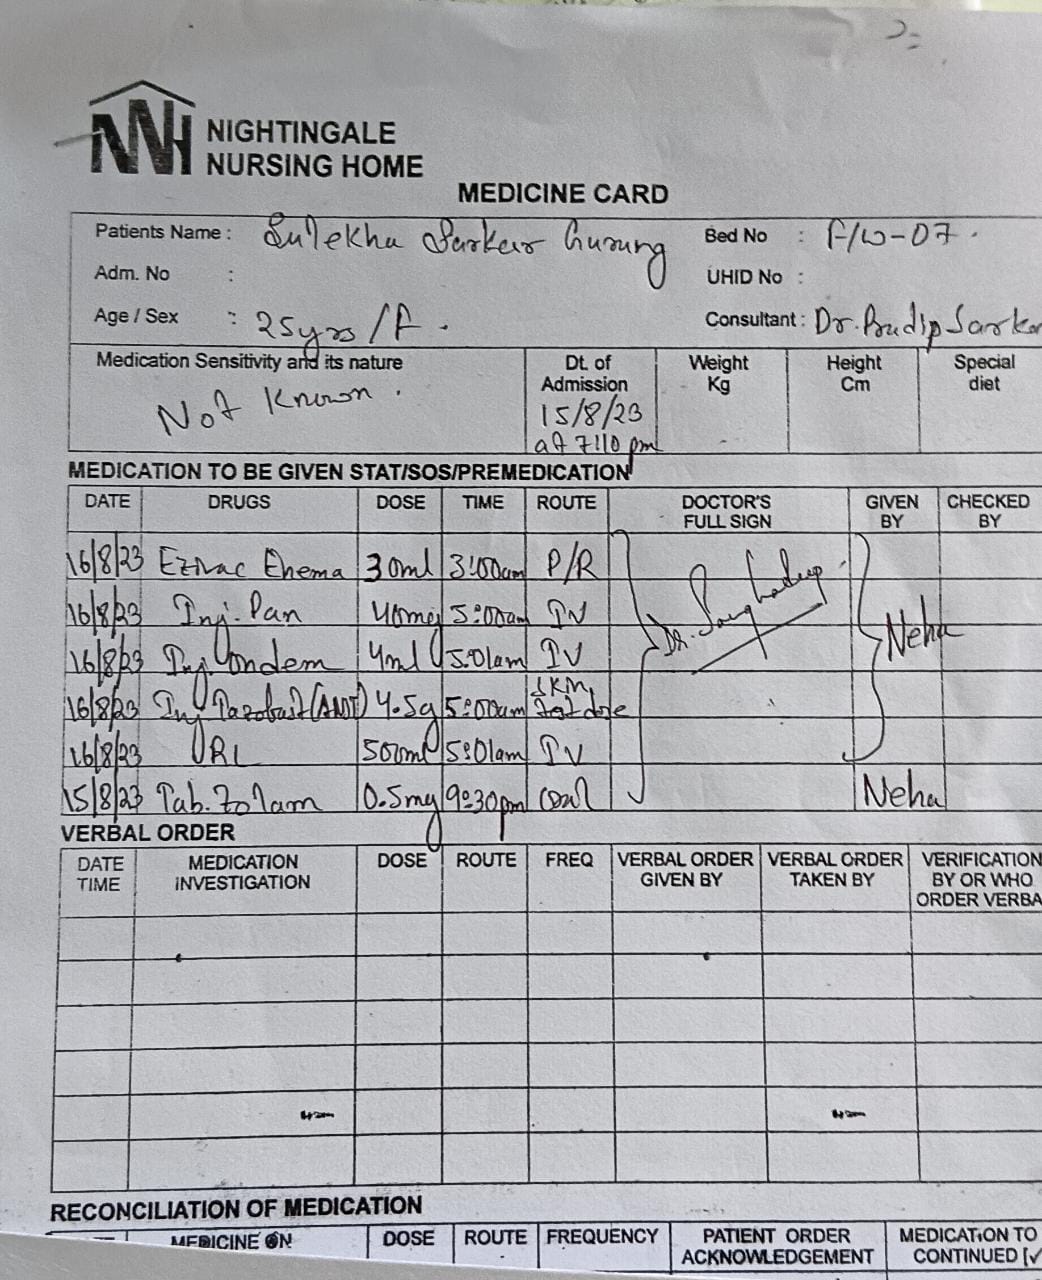 NIGHTINGALE
NURSING HOME
MEDICINE CARD
Patients Name : Sulekha Sarkar Gurung Bed No : F/W-07.
Adm. No : UHID No :
Age / Sex : 25yrs/F. Consultant : Dr. Pradip Sarkar
Medication Sensitivity and its nature Dt. of Admission Weight Kg Height Cm Special diet
Not Known. 15/8/23
at 7:10 pm
MEDICATION TO BE GIVEN STAT/SOS/PREMEDICATION
DATE DRUGS DOSE TIME ROUTE DOCTOR'S FULL SIGN GIVEN BY CHECKED BY
16/8/23 Enema 30ml 3:00am P/R
16/8/23 Inj. Pan 40mg 5:00am IV Dr. Neha
16/8/23 Inj ondem 4ml 5:01am IV
16/8/23 Inj (ADT) 4.5g 5:00am SKIN test dose
16/8/23 RL 500ml 5:01am IV
15/8/23 Tab. Zolam 0.5mg 9:30pm oral Neha
VERBAL ORDER
DATE TIME MEDICATION INVESTIGATION DOSE ROUTE FREQ VERBAL ORDER GIVEN BY VERBAL ORDER TAKEN BY VERIFICATION BY OR WHO ORDER VERBA
RECONCILIATION OF MEDICATION
MEDICINE ON DOSE ROUTE FREQUENCY PATIENT ORDER ACKNOWLEDGEMENT MEDICATION TO CONTINUED [✓